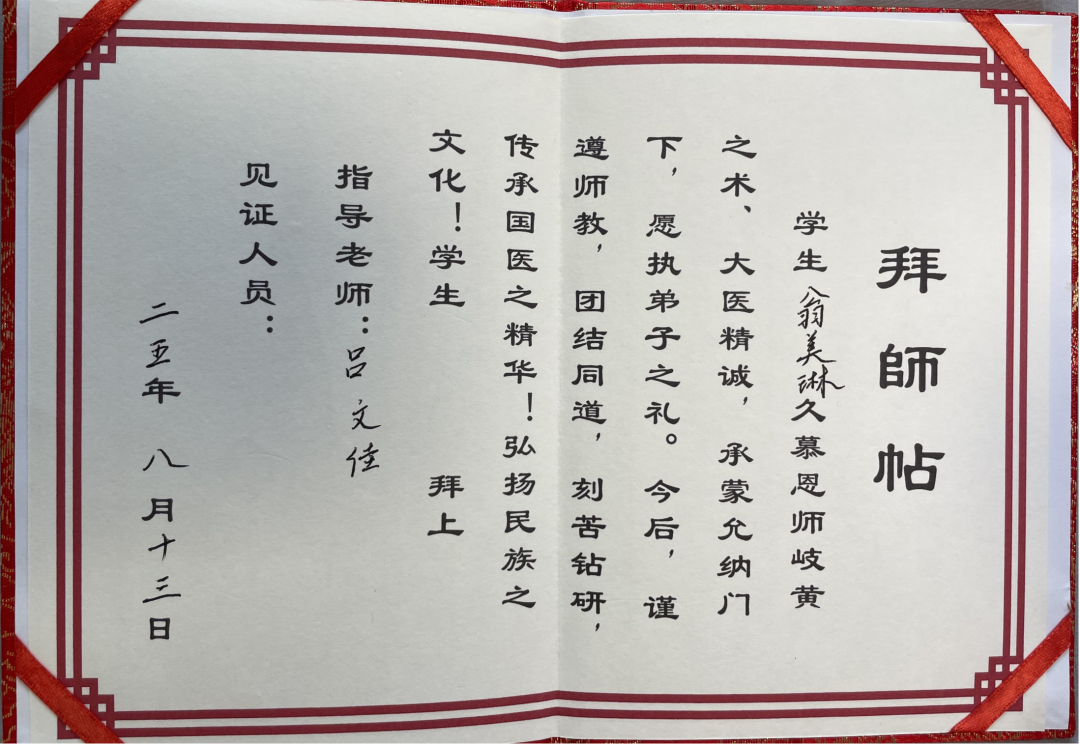 拜師帖
学生翁美琳久慕恩师岐黄
之术、大医精诚，承蒙允纳门
下，愿执弟子之礼。今后，谨
遵师教，团结同道，刻苦钻研，
传承国医之精华！弘扬民族之
文化！学生 拜上
指导老师：吕文佳
见证人员：
二五年 八月十三日